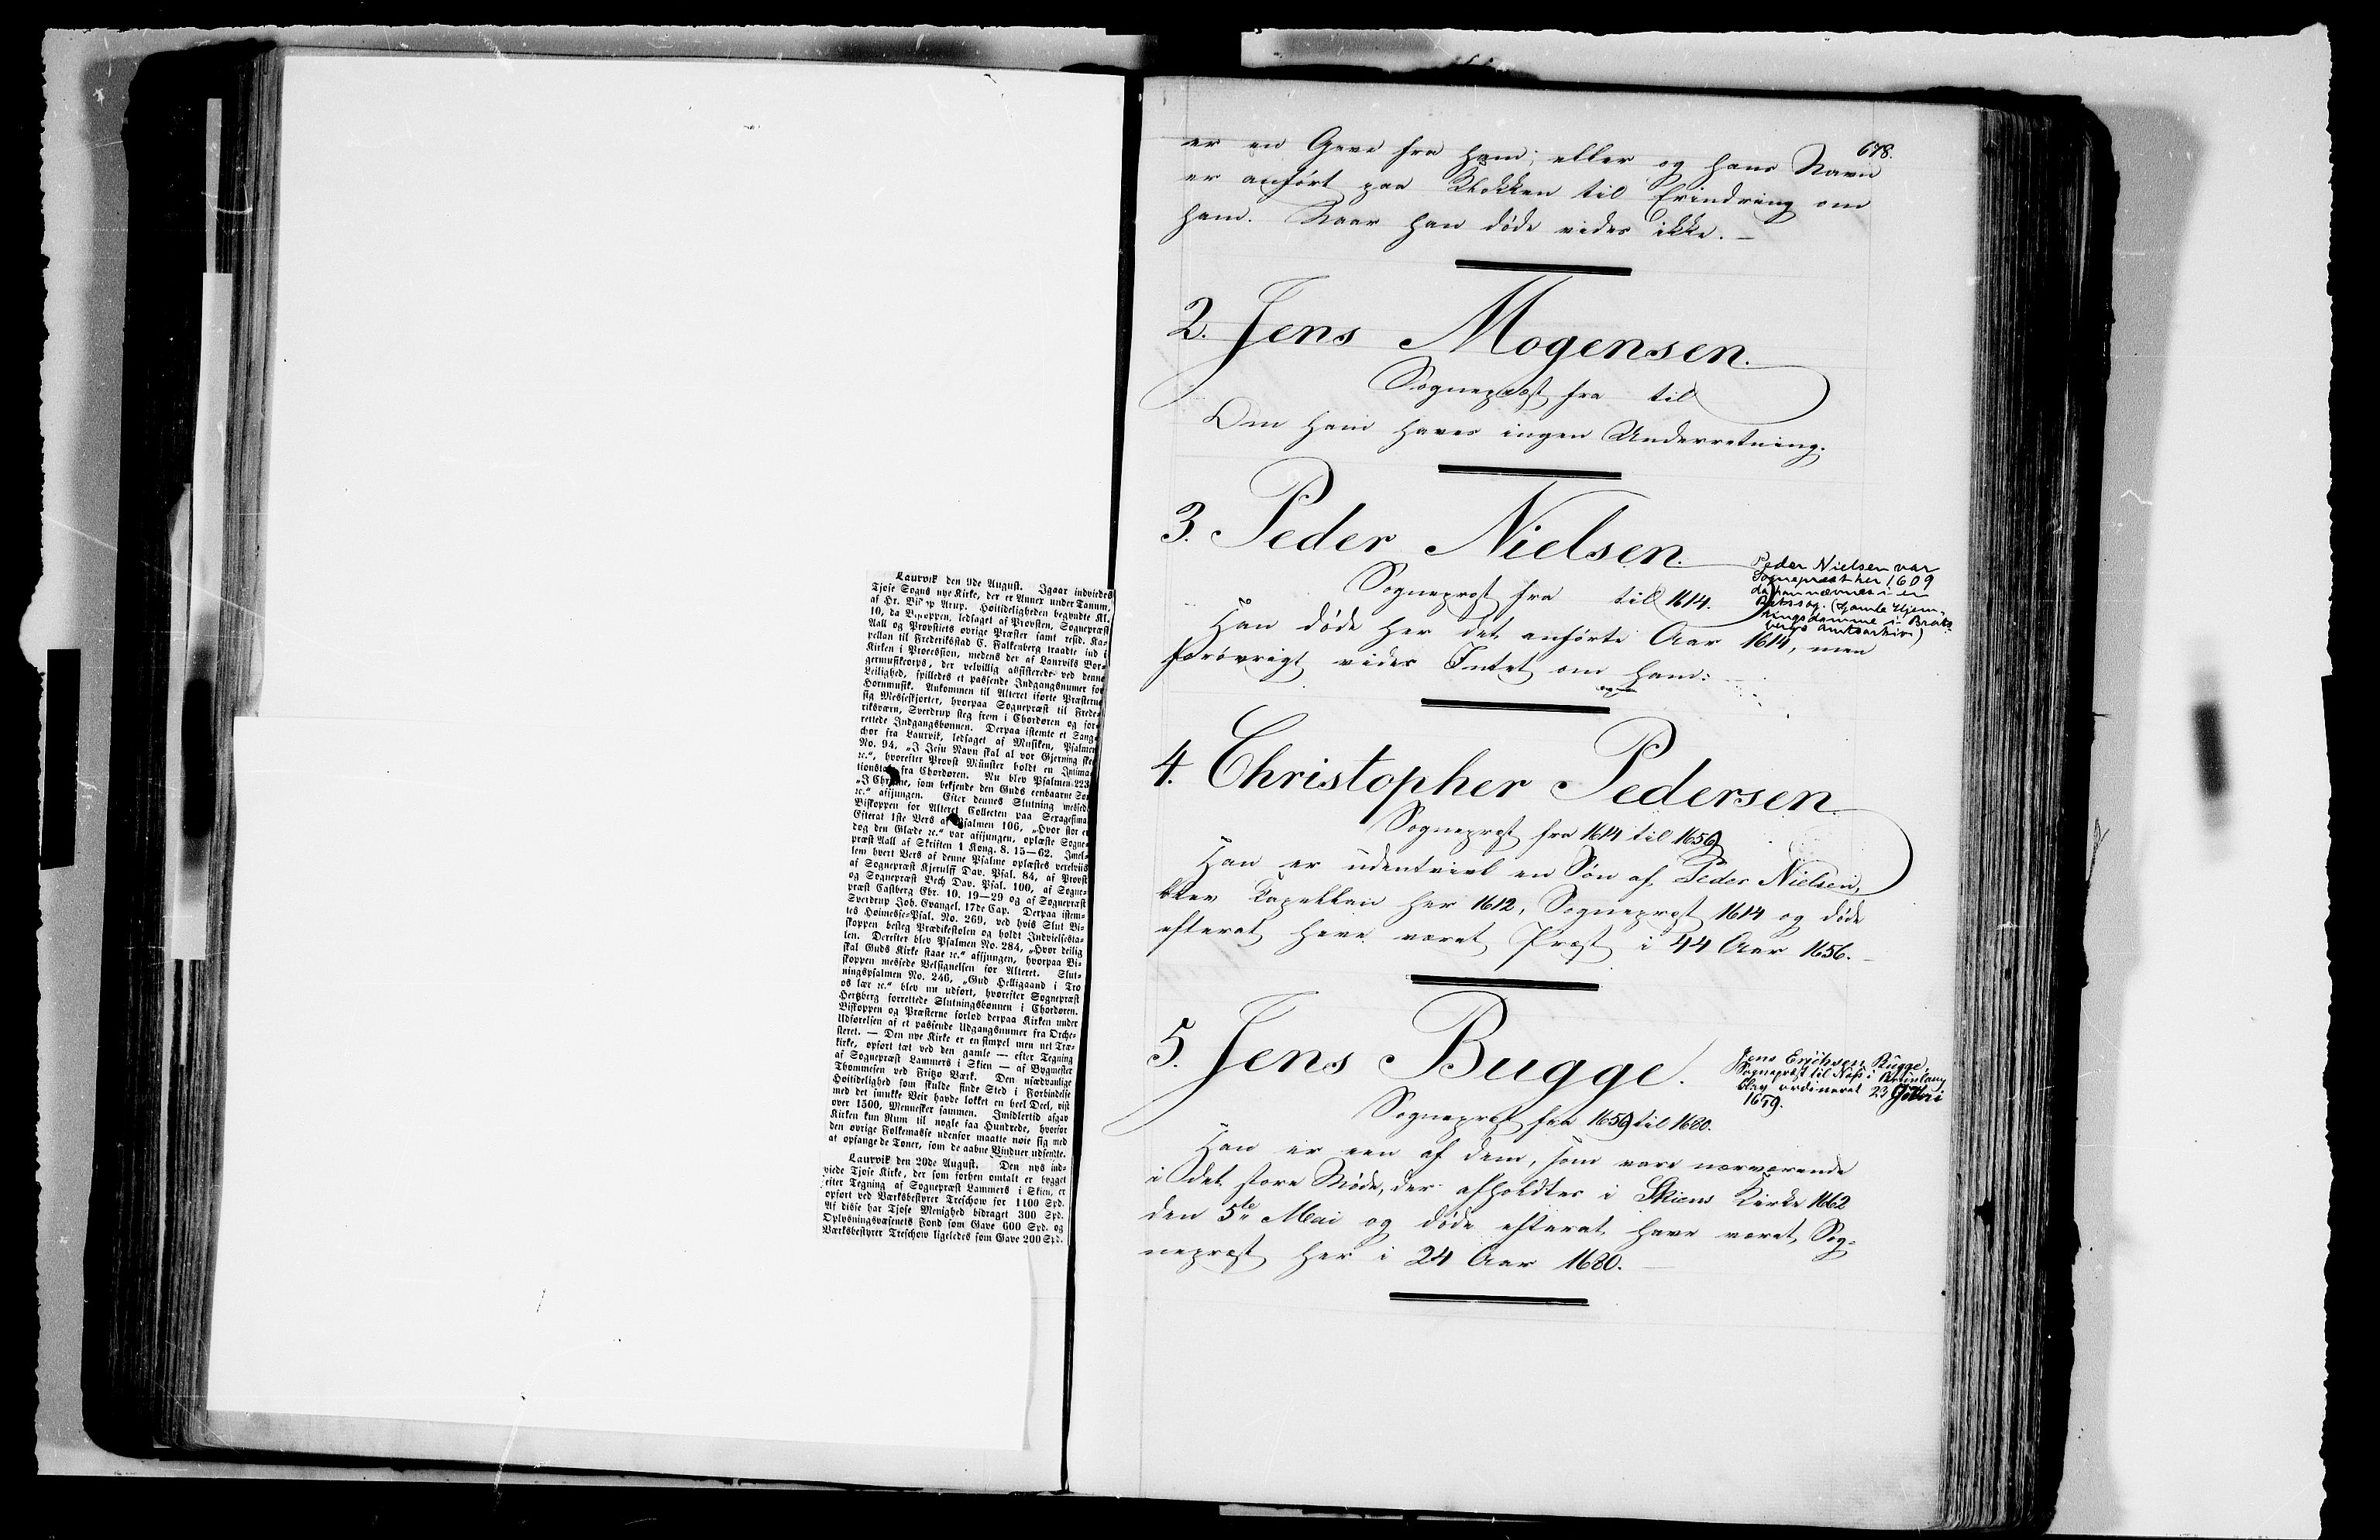 Laurvik den 9de August. Igaar indviedes
Tjose Sogns nye Kirke, der er Annex under Tanum,
af Hr. Arup. Høitideligheden begyndte Kl.
10, da Biskoppen, ledsaget af Provsten, Sognepræst
Aall og Provstiets øvrige Præster samt resid. Ka-
pellan til Frederiksstad C. Falkenberg traadte ind i
Kirken i Procession, medens der af Laurviks Bor-
germusikcorps, der velvillig assisterede ved denne
Leilighed, spilledes et passende Indgangsnumer for
Hornmusik. Ankommen til Alteret iførte Præsterne
sig Messeskjorter, hvorpaa Sognepræst til Frede-
riksværn, Sverdrup steg frem i Chordøren og for-
rettede Indgangsbønnen. Derpaa istemte et Sang-
chor fra Laurvik, ledsaget af Musiken, Psalmen
No. 94, „I Jesu Navn skal al vor Gjerning ske
ꝛc.“, hvorefter Provst Münster holdt en Intima-
fra Chordøren. Nu blev Psalmen 223
som bekjende den Guds eenbaarne Søn
ꝛc.“ afsjungen. Efter dennes Slutning messede
Biskoppen for Alteret Collecten paa Sexagesima.
Efterat 1ste Vers af Psalmen 106, „Hvor stor er
dog den Glæde ꝛc.“ var afsjungen, oplæste Sogne-
præst Aall af Skriften 1 Kong. 8. 15—62. Imel-
lem hvert Vers af denne Psalme oplæstes vexelviis
af Sognepræst Kjerulff Dav. Psal. 84, af Provst
og Sognepræst Bech Dav. Psal. 100, af Sogne-
præst Castberg Ebr. 10. 19—29 og af Sognepræst
Sverdrup Joh. Evangel. 17de Cap. Derpaa istem-
tes Høimesse-Psal. No. 269, ved hvis Slut Bi-
skoppen besteg Prædikestolen og holdt Indvielsesta-
len. Derefter blev Psalmen No. 284, „Hvor deilig
skal Guds Kirke staae ꝛc.“ afsjungen, hvorpaa Bi-
skoppen messede Velsignelsen for Alteret. Slut-
ningspsalmen No. 246, „Gud Helligaand i Tro
os lær ꝛc.“ blev nu udført, hvorefter Sognepræst
Hertzberg forrettede Slutningsbønnen i Chordøren.
Biskoppen og Præsterne forlod derpaa Kirken under
Udførelsen af et passende Udgangsnummer fra Orche-
steret. — Den nye Kirke er en simpel men net Træ-
kirke, opført tæt ved den gamle — efter Tegning
af Sognepræst Lammers i Skien — af Bygmester
Thommesen ved Fritzø Værk. Den usædvanlige
Høitidelighed som skulde finde Sted i Forbindelse
med det smukke Veir havde lokket en heel Deel, vist
over 1500, Mennesker sammen. Imidlertid afgav
Kirken kun Rum til nogle faa Hundrede, hvorfor
den øvrige Folkemasse udenfor maatte nøie sig med
at opfange de Toner, som de aabne Vinduer udsendte.
Laurvik den 20de August. Den nys ind-
viede Tjose Kirke, der som forhen omtalt er bygget
efter Tegning af Sognepræst Lammers i Skien, er
opført ved Værksbestyrer Treschow for 1100 Spd.
Af disse har Tjose Menighed bidraget 300 Spd.
Oplysningsvæsenets Fond som Gave 600 Spd. og
Værksbestyrer Treschow ligeledes som Gave 200 Spd.
678.
er en Gave fra ham; eller og hans Navn
er anført paa Klokken til Erindring om
ham. Naar han døde vides ikke. —
2. Jens Mogensen.
Sognepræst fra til
Om ham haves ingen Underretning.
3. Peder Nielsen.
Peder Nielsen var
Sognepræst her 1609
da han nævnes i en
Retssag. (Gamle Hjem-
tingsdomme i Brats-
bergs amtsarkiv)
Sognepræst fra til 1614.
Han døde her det anførte Aar 1614, men
forøvrigt vides Intet om ham.
4. Christopher Pedersen
Sognepræst fra 1614 til 1659
Han er udentvivl en Søn af Peder Nielsen,
blev Kapellan her 1612, Sognepræst 1614 og døde
efterat have været Præst i 44 Aar 1656. —
5. Jens Bugge.
Jens Erichsen Bugge,
Sognepræst til Næs i
blev ordineret 23
1659.
Sognepræst fra 1659 til 1680.
Han er een af dem, som vare nærværende
i det store Møde, der afholdtes i Skiens Kirke 1662
den 5te Mai og døde efterat have været Sog-
nepræst her i 24 Aar 1680. —